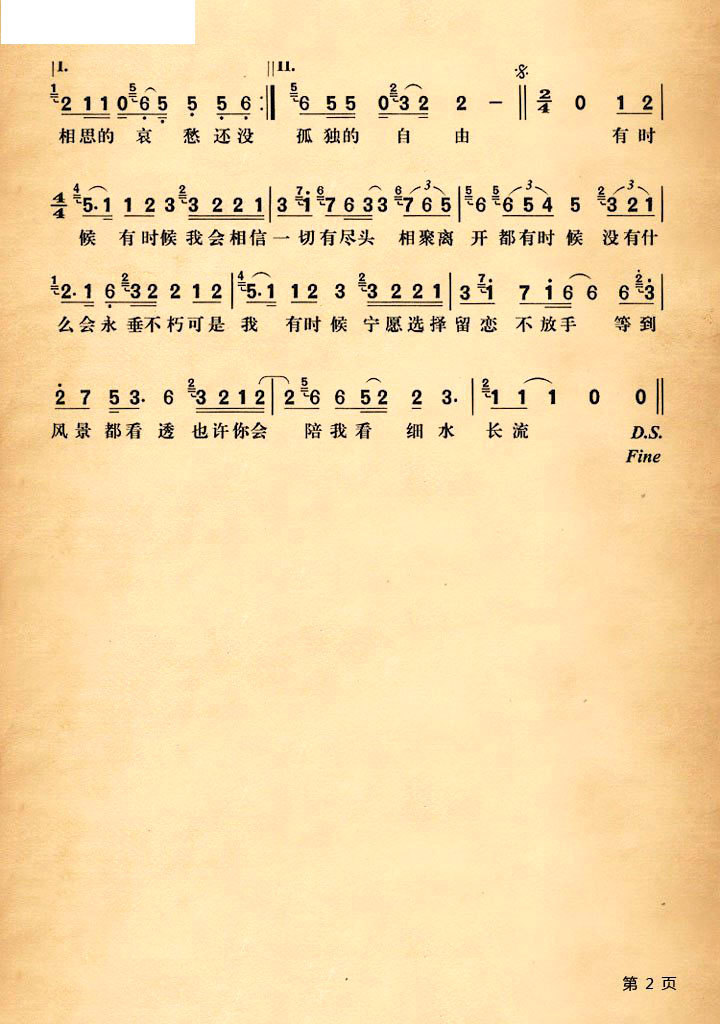 I. II.
2 1 1 0 6 5 5 5 6 6 5 5 0 3 2 2 – 2/4 0 1 2
相思的 哀 愁 还没 孤独的 自 由 有时
4/4 5· 1 1 2 3 3 2 2 1 3 1 7 6 3 3 7 6 5 6 6 5 4 5 3 2 1
候 有时候我会相信一切有尽头 相聚离 开都有时候 没有什
2· 1 6 3 2 2 1 2 5· 1 1 2 3 3 2 2 1 3 1 7 1 6 6 6 3
么会永垂不朽可是我 有时候 宁愿选择留恋 不放手 等到
2 7 5 3· 6 3 2 1 2 2 6 6 5 2 2 3· 1 1 1 0 0
风景都看透也许你会 陪我看 细水长流 D.S.
Fine
第 2 页